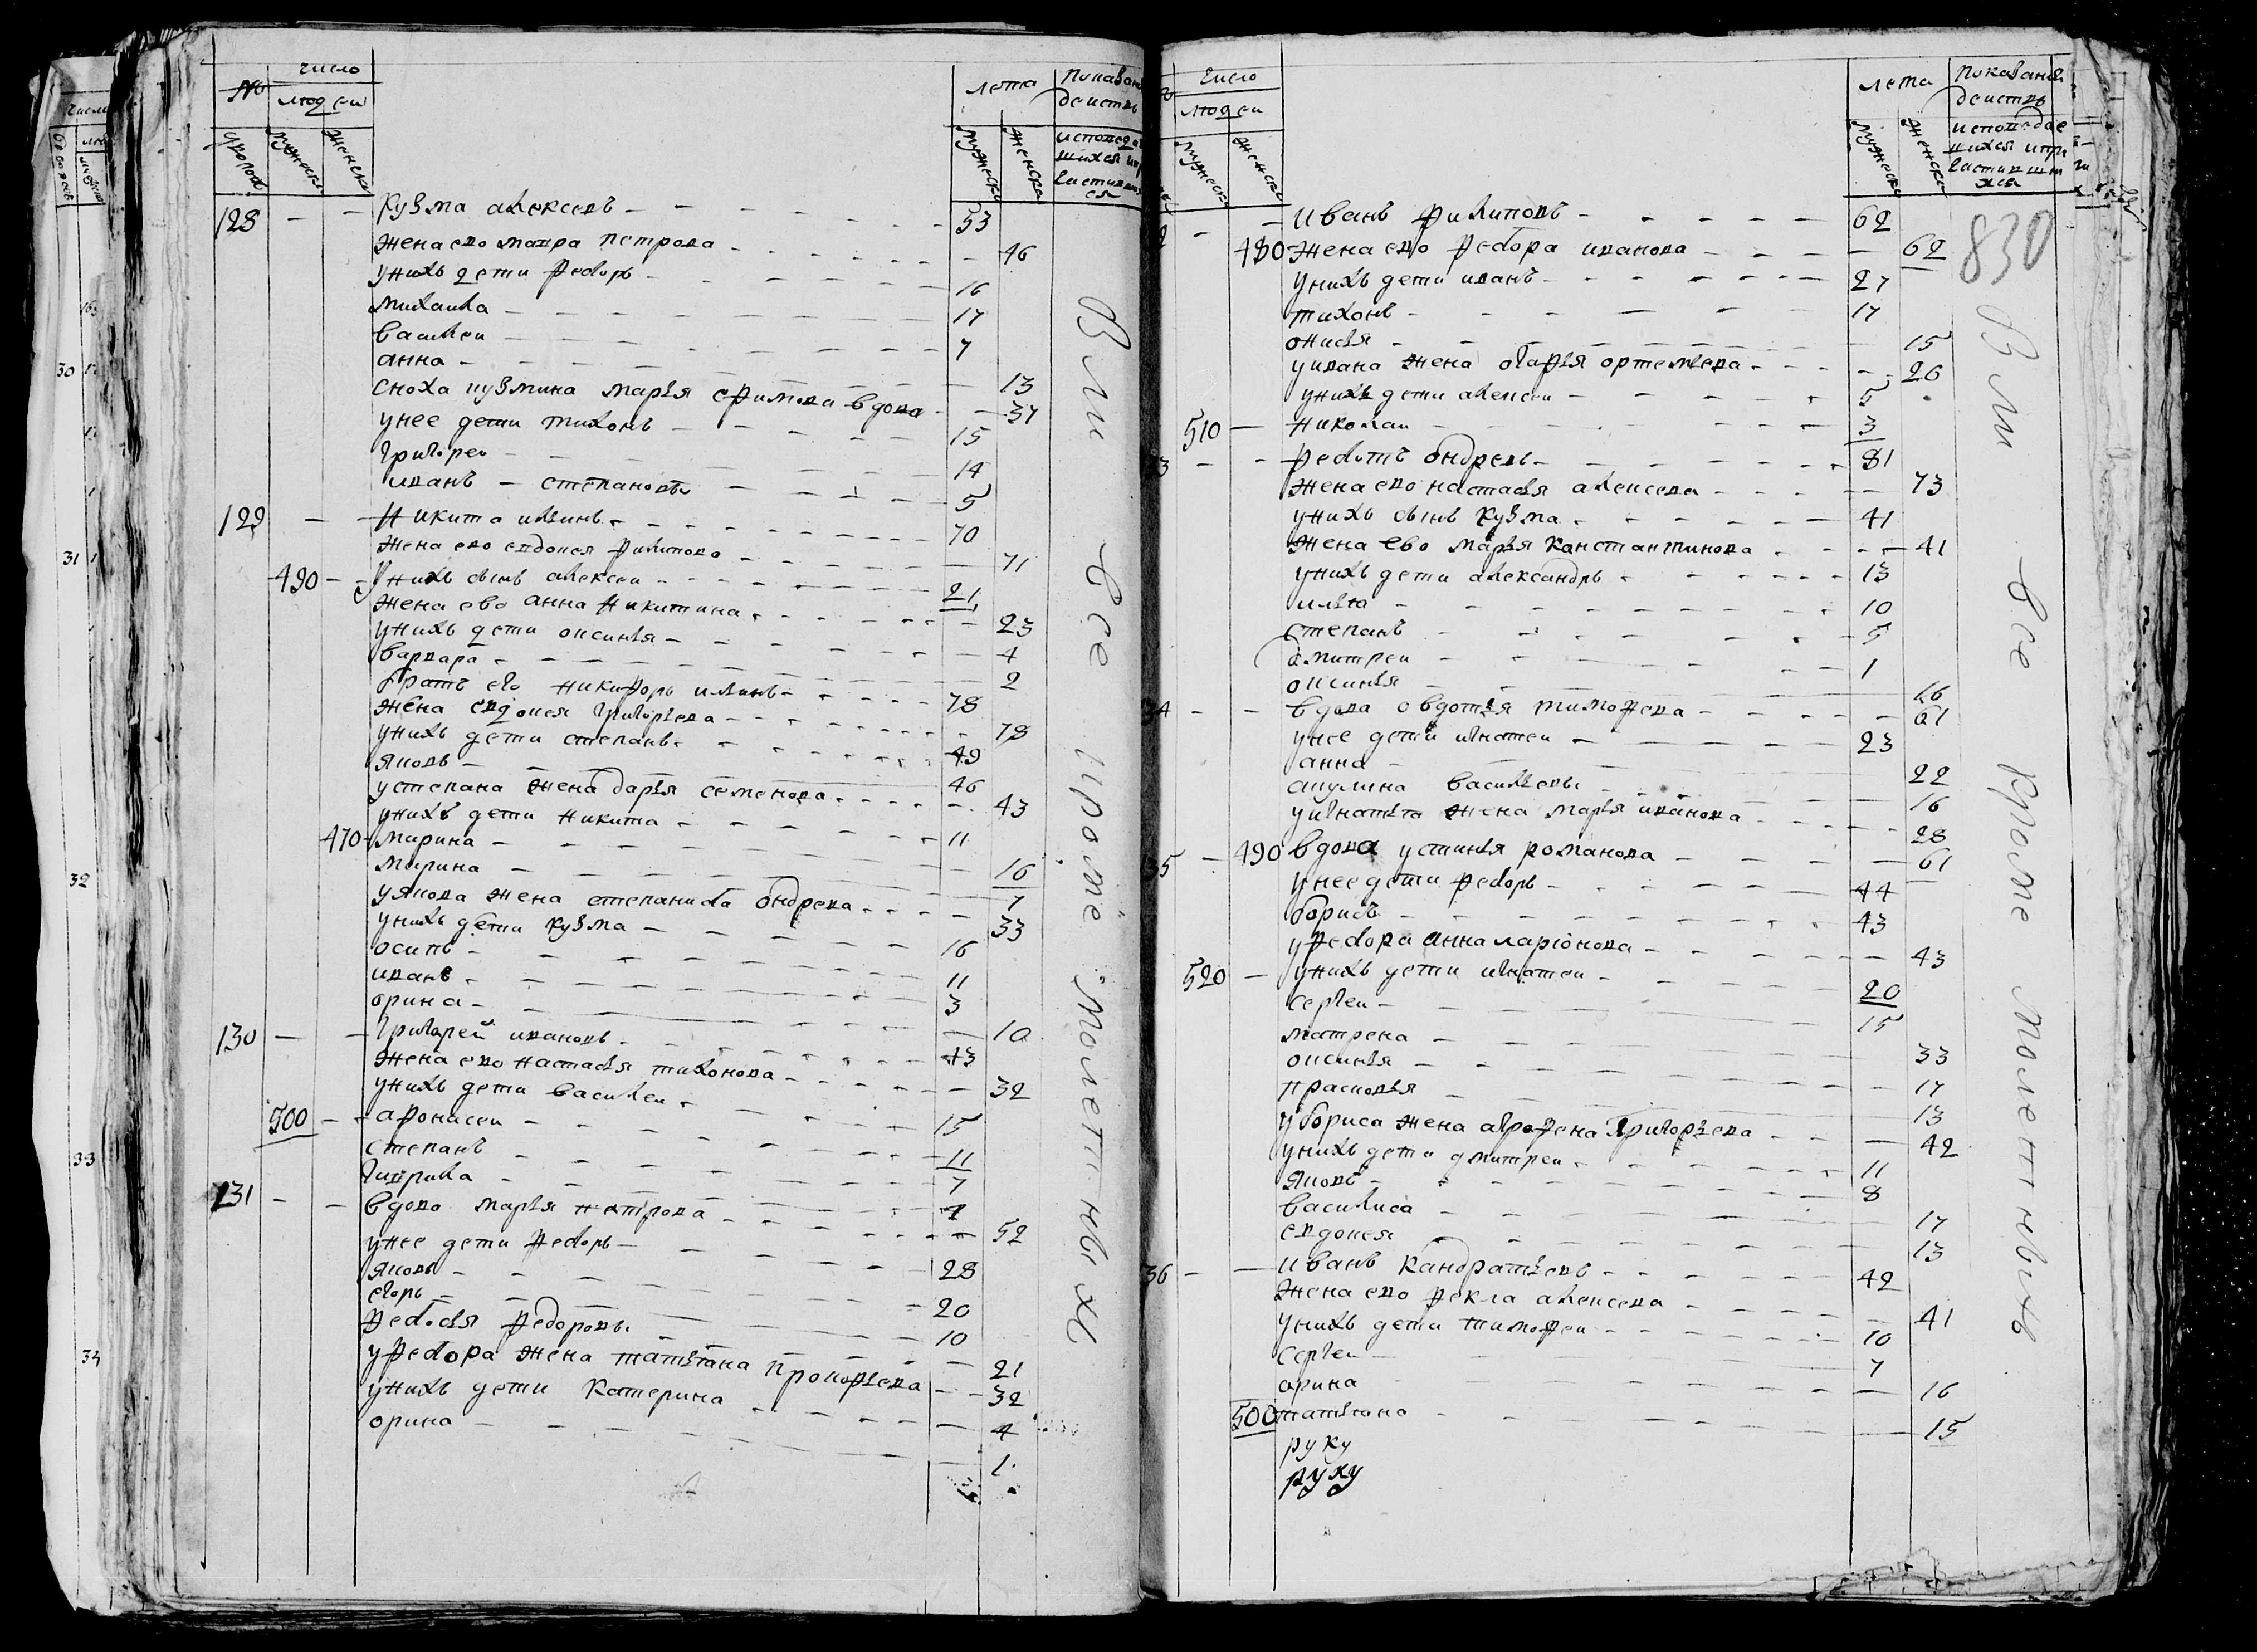 число
№ людеи
лета
показани
деиств
дворов
мужеска
женска
мужеска
женска
исповеда
шихся ипри
частивши
ся
128 кузма алексеевъ 53
жена ево мавра петрова 46
унихъ дети федоръ 16
михаила 17
василеи 7
анна 13
сноха кузмина марья ефимова вдова 37
унее дети тихонъ 15
григореи 14
иванъ степановы 5
129 никита илинъ 70
жена ево евдокея филипова 71
490 унихъ сынъ алексеи 21
жена ево анна никитина 23
унихъ дети оксинья 4
варвара 2
братъ его никифоръ илинъ 78
жена евдокея григорьева 78
унихъ дети степанъ 49
яковъ 46
устепана жена дарья семенова 43
унихъ дети никита 11
470 марина 16
марина 7
уякова жена степанида ондрева 33
унихъ дети кузма 16
осипъ 11
иванъ 3
орина 10
130 григорей ивановъ 43
жена ево настасья тихонова 32
унихъ дети василеи 15
500 афонасеи 11
степанъ 7
гаврила 1
131 вдова марья петрова 52
унее дети федоръ 28
яковъ 20
егоръ 10
федосья федоровы 21
уфедора жена татьяна прокофьева 32
унихъ дети катерина 4
орина 1
Вли все кроме малетныхъ
число
людеи
лета
показани
деиств
мужеска
женска
мужеска
женска
исповедав
шихся ипри
частивши
хся
830
иванъ филиповъ 62
480 жена ево федора иванова 62
унихъ дети иванъ 27
тихонъ 17
онисья 15
уивана жена дарья ортемьева 26
унихъ дети алексеи 5
510 николаи 3
33 федотъ ондреевъ 81
жена ево настасья алексеева 73
унихъ сынъ кузма 41
жена ево марья канстантинова 41
унихъ дети александръ 13
илья 10
степанъ 5
дмитреи 1
оксинья 16
34 вдова овдотья тимофеева 61
унее дети игнатеи 23
анна 22
акулина васильевы 16
уигнатья жена марья иванова 28
35 490 вдова устинья романова 61
унее дети федоръ 44
борисъ 43
уфедора анна ларионова 43
520 унихъ дети игнатеи 20
сергеи 15
матрена 33
оксинья 17
прасковья 13
убориса жена аграфена григорьева 42
унихъ дети дмитреи 11
яковъ 8
василиса 17
евдокея 13
36 иванъ кандратьевъ 42
жена ево фекла алексеева 41
унихъ дети тимофеи 10
сергеи 7
орина 16
500 татьяна 15
руку
руку
Вли все кроме малетныхъ